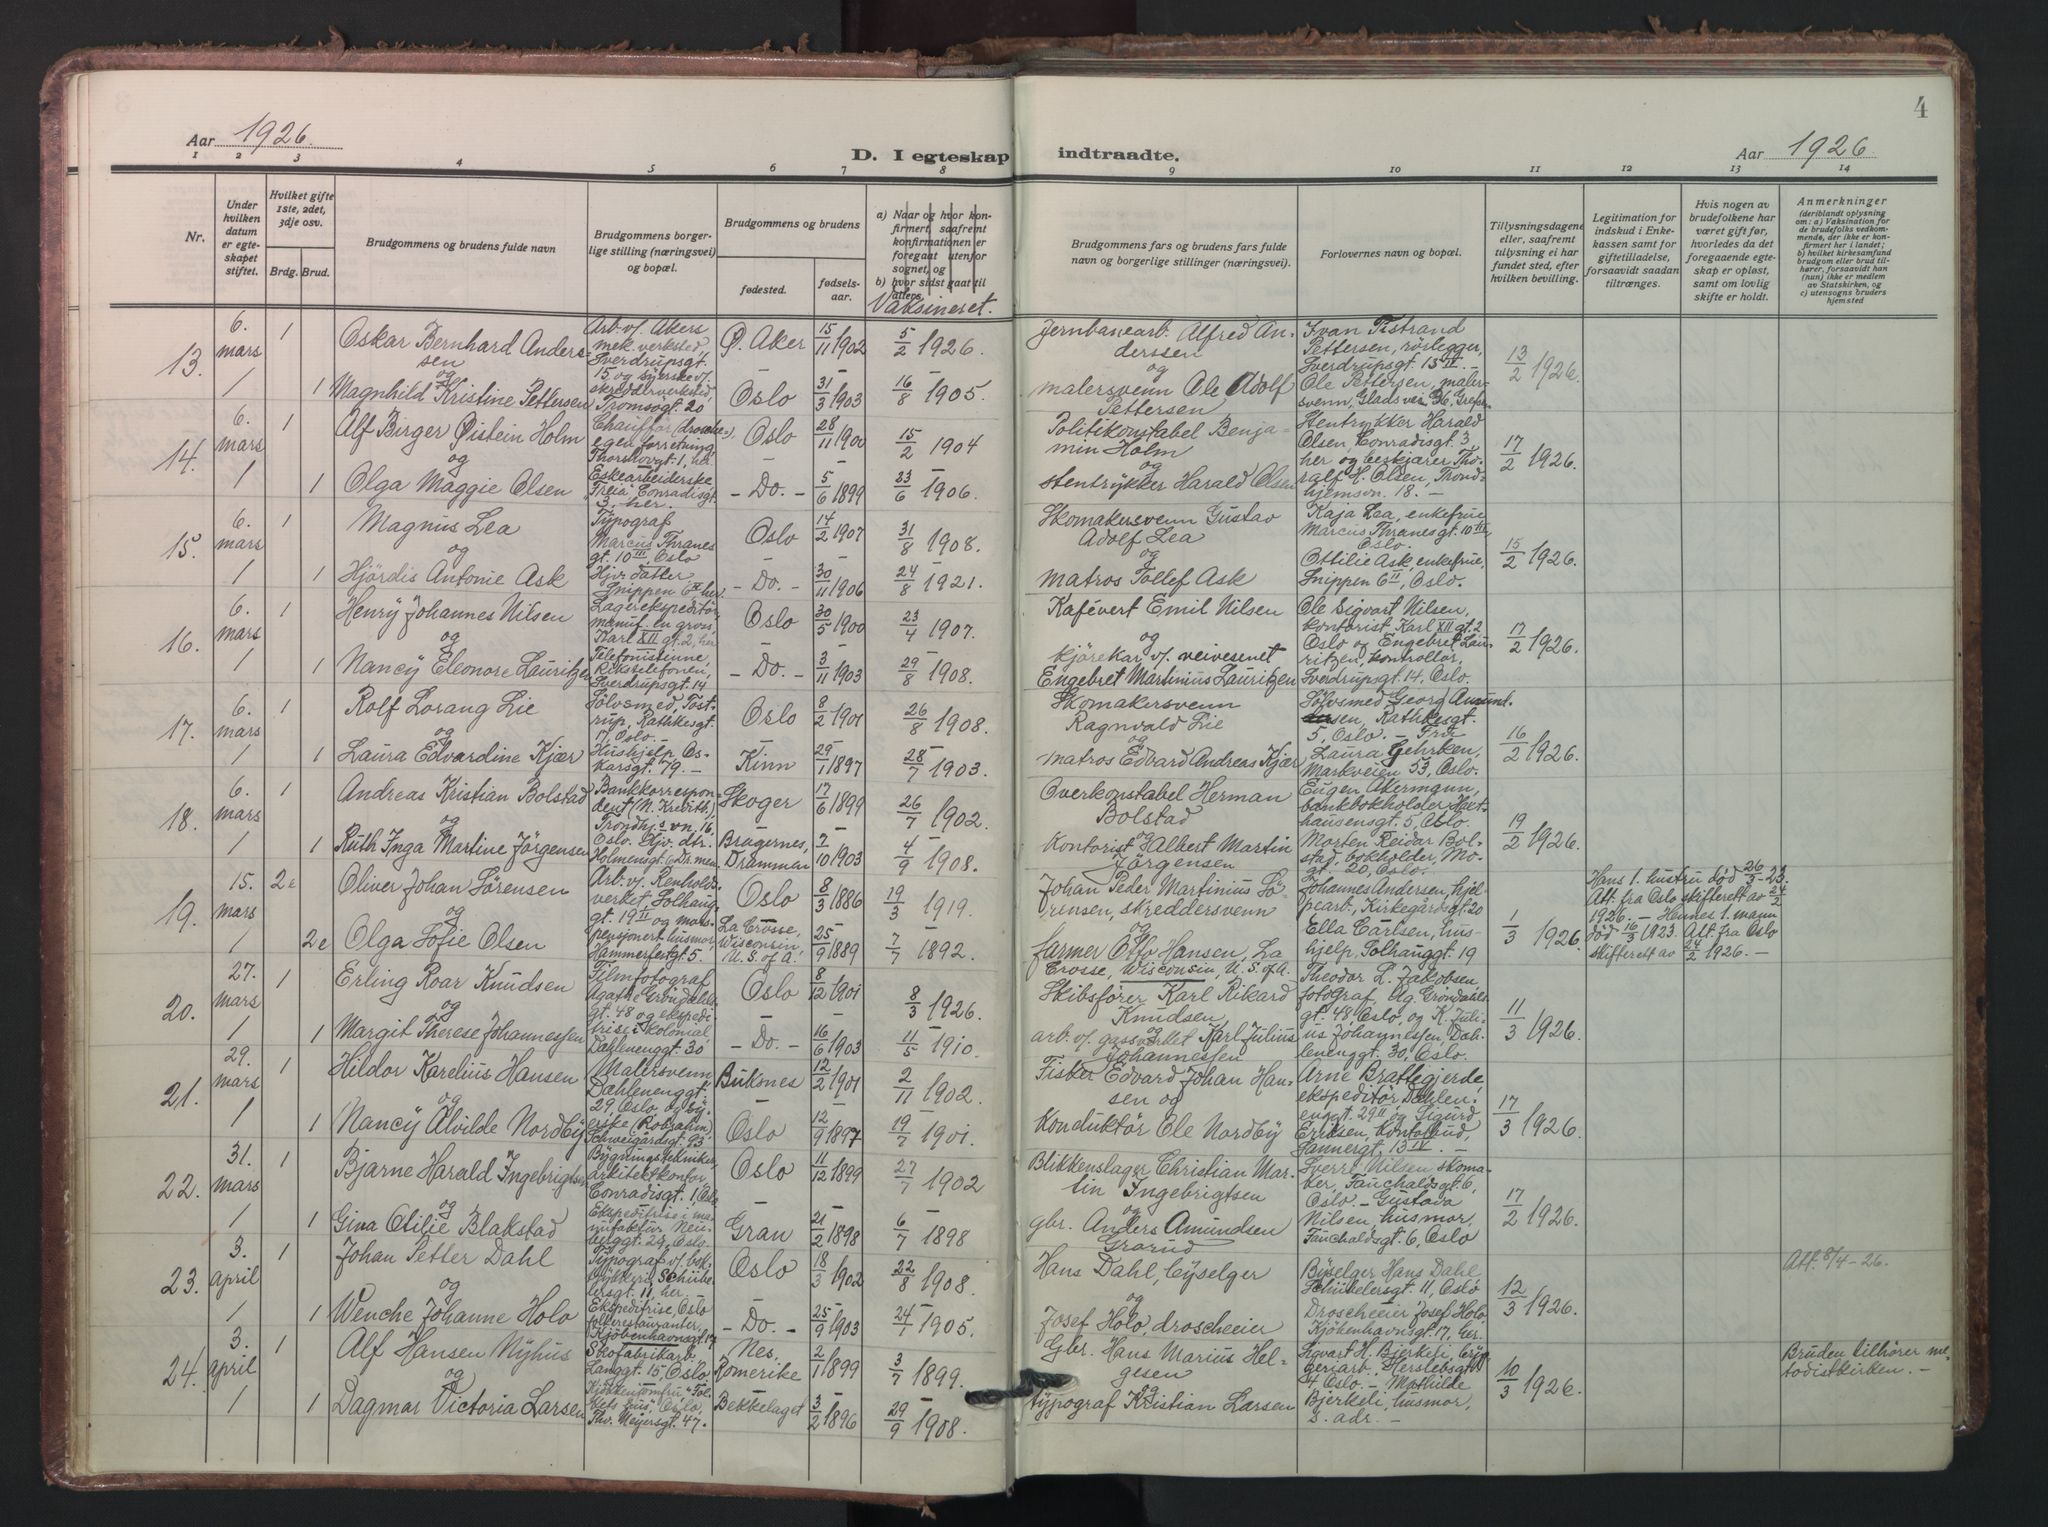 4
Aar 1926.
D. I egteskap indtraadte.
Aar 1926
1 2 3 4 5 6 7 8 9 10 11 12 13 14
Nr.
Under hvilken datum er egteskapet stiftet.
Hvilket gifte 1ste, 2det, 3dje osv.
Brdg. Brud.
Brudgommens og brudens fulde navn
Brudgommens borgerlige stilling (næringsvei) og bopæl.
Brudgommens og brudens
fødested.
fødselsaar.
a) Naar og hvor konfirmert, saafremt konfirmationen er foregaat utenfor sognet, og
b) hvor sidst gaat til alters.
Vaksineret.
Brudgommens fars og brudens fars fulde navn og borgerlige stillinger (næringsvei).
Forlovernes navn og bopæl.
Tillysningsdagene eller, saafremt tillysning ei har fundet sted, efter hvilken bevilling.
Legitimation for indskud i Enkekassen samt for giftetilladelse, forsaavidt saadan tiltrænges.
Hvis nogen av brudefolkene har været gift før, hvorledes da det foregaaende egteskap er opløst, samt om lovlig skifte er holdt.
Anmerkninger
(deriblandt oplysning om: a) Vaksination for de brudefolks vedkommende, der ikke er konfirmert her i landet; b) hvilket kirkesamfund brudgom eller brud tilhører, forsaavidt han (hun) ikke er medlem av Statskirken, og c) utensogns bruders hjemsted
13. 6. mars 1 Oskar Bernhard Anderssen Arb. v. Akers mek. verksted Sverdrupsgt. 15 og Ø. Aker 15/11 1902 5/2 1926. Jernbanearb. Alfred Anderssen Ivan Tistrand Pettersen, rørlegger, Sverdrupsgt. 15 IV. - 13/2 1926.
og
1 1 Magnhild Kristine Pettersen syerske v. skredderverksted, Tromsøgt. 20 Oslo 31/3 1903 16/8 1905. malersvenn Ole Adolf Pettersen Ole Pettersen, malersvenn, Gladsvei 36, Grefsen
14. 6. mars 1 Alf Birger Øistein Holm Chauffør (drosche), egen forretning, Thorshovgt. 1, her. Oslo 28/11 1900 15/2 1904 Politikonstabel Benjamin Holm Stentrykker Harald Olsen, Conradisgt. 3, her og beskjærer Thoralf H. Olsen, Trondhjemsvn. 18. - 17/2 1926.
og
1 1 Olga Maggie Olsen Eskearbeiderske "Freia" Conradisgt. 3. her. - Do. - 5/6 1899 23/6 1906. stentrykker Harald Olsen
15. 6. mars 1 Magnus Lea Typograf Marcus Thranes gt. 10 III, Oslo Oslo 14/2 1907 31/8 1908. Skomakersvenn Gustav Adolf Lea Kaja Lea, enkefrue Marcus Thranesgt. 10 III, Oslo. 15/2 1926.
og
1 1 Hjørdis Antonie Ask Hjv. datter Snippen 6 II her - Do. - 30/11 1906 24/8 1921. matros Tollef Ask Ottilie Ask, enkefrue, Snippen 6 II, Oslo.
16. 6. mars 1 Henry Johannes Nilsen Lagerekspeditør, manuf. en gros, Karl XII gt. 2, her Oslo 30/5 1900 23/4 1907. Kafévert Emil Nilsen Ole Sigvart Nilsen, kontorist Karl XII gt. 2 Oslo og Engebret Lauritzen, kontrollør, Sverdrupsgt. 14, Oslo. 17/2 1926.
og
1 1 Nancy Eleonore Lauritzen Telefonistinne, Rikstelefonen, Sverdrupsgt. 14 - Do. - 3/11 1903 29/8 1908. kjørekar v. veivesenet Engebret Martinius Lauritzen
17. 6. mars 1 Rolf Lorang Lie Sølvsmed, Tostrup, Rathkesgt. 17, Oslo. - Oslo 8/2 1901 26/8 1908. Skomakersvenn Ragnvald Lie Sølvsmed Georg Amundsen, Rathkesgt. 5, Oslo. - Fru Laura Gehrken, Markveien 53, Oslo. 16/2 1926.
og
1 1 Laura Edvardine Kjær Hushjelp Oskarsgt. 79. - Kinn 29/1 1897 28/7 1903. matros Edvard Andreas Kjær
18. 6. mars 1 Andreas Kristian Bolstad Bankkorrespondent (N. Kreditb), Trondhj.s vn. 16, Oslo. Skoger 17/6 1899 26/7 1902. Overkonstabel Herman Bolstad Eugen Akermann, bankbokholder, Haxthausensgt. 5, Oslo. 19/2 1926.
og
1 1 Ruth Inga Martine Jørgensen Hjv. dtr. Holmensgt. 6 Drammen Bragernes, Drammen 7/10 1903 4/9 1908. Kontorist Halbert Martin Jørgensen Morten Reidar Bolstad, bokholder, Mogt. 20, Oslo.
19. 15. mars 2e Oliver Johan Sørensen Arb. v. Renholdsverket, Solhauggt. 19 I og Oslo 8/3 1886 19/3 1919. Johan Peder Martinius Sørensen, skreddersvenn Johannes Andersen, hjelpearb., Kirkegårdsgt. 20 1/3 1926. Hans 1. hustru død 26/3-23. Att. fra Oslo skifterett av 24/2 1926. - Hennes 1. mann død 16/3 1923. Att. fra Oslo skifterett av 24/2 1926. -
og
1 2e Olga Sofie Olsen pensjonert husmor, Hammerfestgt. 5. La Crosse, Wisconsin, U. S. of A. 25/9 1889 7/7 1892. farmer Otto Hansen, La Crosse, Wisconsin, U. S. of A. Ella Carlsen, hushjelp, Solhauggt. 19
20. 27. mars 1 Erling Roar Knudsen Filmfotograf Agathe Grøndahls gt. 48 og Oslo 8/12 1901 8/3 1926. Skibsfører Karl Rikard Knudsen Theodor L. Jakobsen, fotograf, Ag. Grøndahls gt. 48 Oslo, og K. Julius Johannessen, Dahlenenggt. 30, Oslo. 11/3 1926.
og
1 1 Margit Therese Johannessen ekspeditrise i kolonial, Dahlenenggt. 30 - Do. - 16/6 1903 11/5 1910. arb. v. gassverket Karl Julius Johannessen
21. 29. mars 1 Hildor Karelius Hansen Malersvenn Dahlenenggt. 29, Oslo, og Buksnes 12/2 1901 2/11 1902. Fisker Edvard Johan Hansen Arne Brattegjerde, ekspeditør, Dahlenenggt. 29 II, og Sigurd Eriksen, kontorbud, Sannergt. 13 IV. - 17/3 1926.
og
1 1 Nancy Alvilde Nordby Schweigårdsgt. 93. Oslo 12/9 1897 19/7 1901. Konduktør Ole Nordby
22. 31. mars 1 Bjarne Harald Ingebrigtsen Bygningstekniker, arkitektkontor, Conradisgt. 1, Oslo Oslo 11/12 1899 27/7 1902 Blikkenslager Christian Martin Ingebrigtsen Sverre Nilsen skomaker, Fauchaldsgt. 6, Oslo. - Gustava Nilsen, husmor, Fauchaldsgt. 6, Oslo 17/2 1926.
og
1 1 Gina Otilie Blakstad Ekspeditrise i manufaktur, Neuberggt. 24, Oslo. Gran 21/2 1898 6/7 1898 gbr. Anders Amundsen Grarud
23. 3. april 1 Johan Petter Dahl Typograf v. Schübelersgt. 11, her. Oslo 18/3 1902 22/8 1908. Hans Dahl, byselger Byselger Hans Dahl Schübelersgt. 11, Oslo 12/3 1926. Att. 8/4-26.
og
1 1 Wenche Johanne Holo Ekspeditrise, Oslo folkerestauranter, Kjøbenhavnsgt. 17 - Do. - 25/9 1903 24/7 1905. Josef Holo, droscheeier Droscheeier Josef Holo, Kjøbenhavnsgt. 17, her.
24. 3. april 1 Alf Hansen Nyhus Skofabrikarb. Langgt. 15, Oslo Nes, Romerike 2/1 1899 3/7 1899. Gbr. Hans Marius Helgesen Sigvart H. Bjerkeli, Herslebsgt. 4 Oslo. - Mathilde Bjerkeli, husmor, s. adr. - 10/3 1926. Bruden tilhører metodistkirken. -
og
1 1 Dagmar Victoria Larsen Kjøkkenjomfru "Folkets hus", Oslo, Thv. Meyersgt. 47. Bekkelaget 3/2 1896 29/9 1908. typograf Kristian Larsen